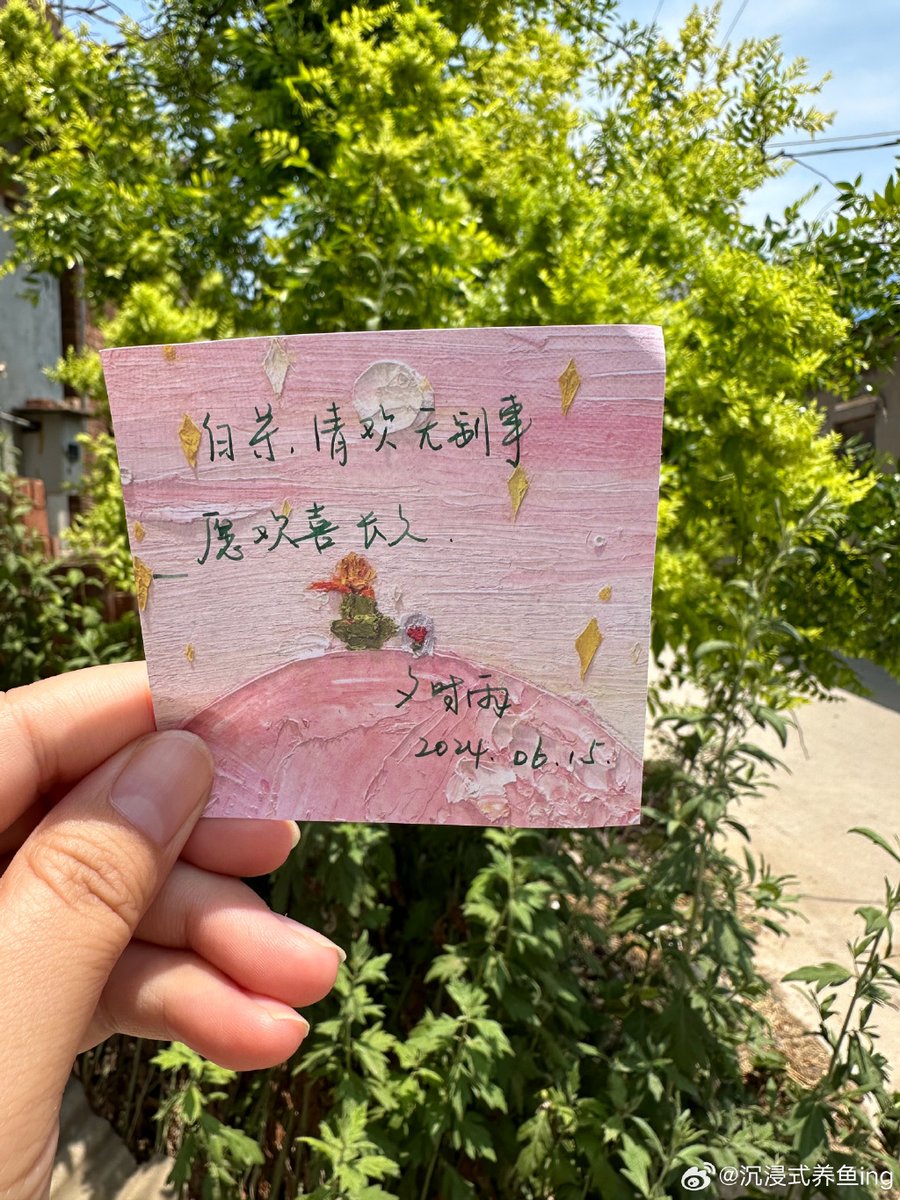 白茶.清欢无别事
愿欢喜长久.
夕时雨
2024.06.15.
@沉浸式养鱼ing